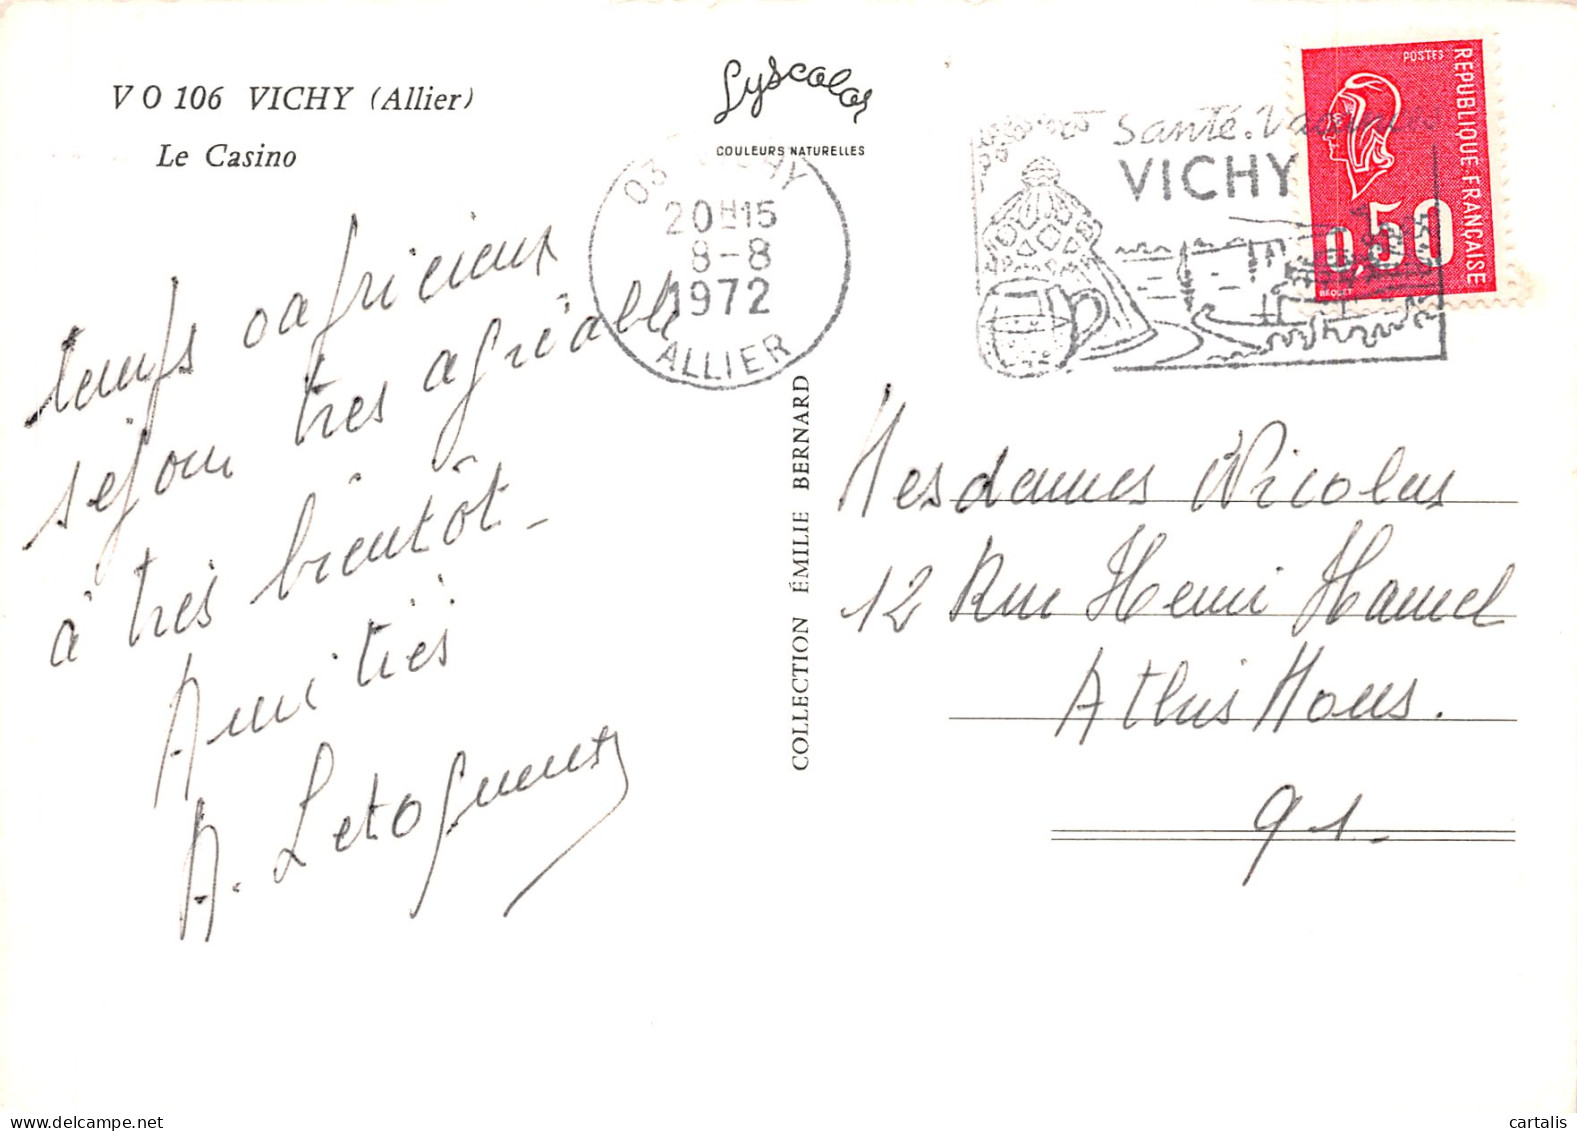 V O 106 VICHY (Allier)
Le Casino
Lyscolor
COULEURS NATURELLES
03 VICHY
20H15
8-8
1972
ALLIER
Santé. Vacances
VICHY
POSTES
REPUBLIQUE FRANÇAISE
0,50
BEQUET
temps capricieux
séjour très agréable
à très bientôt -
Amitiés
A.
COLLECTION ÉMILIE BERNARD
Mesdames Nicolas
12 Rue Henri Hamel
Athis Mons.
91.
cartalis